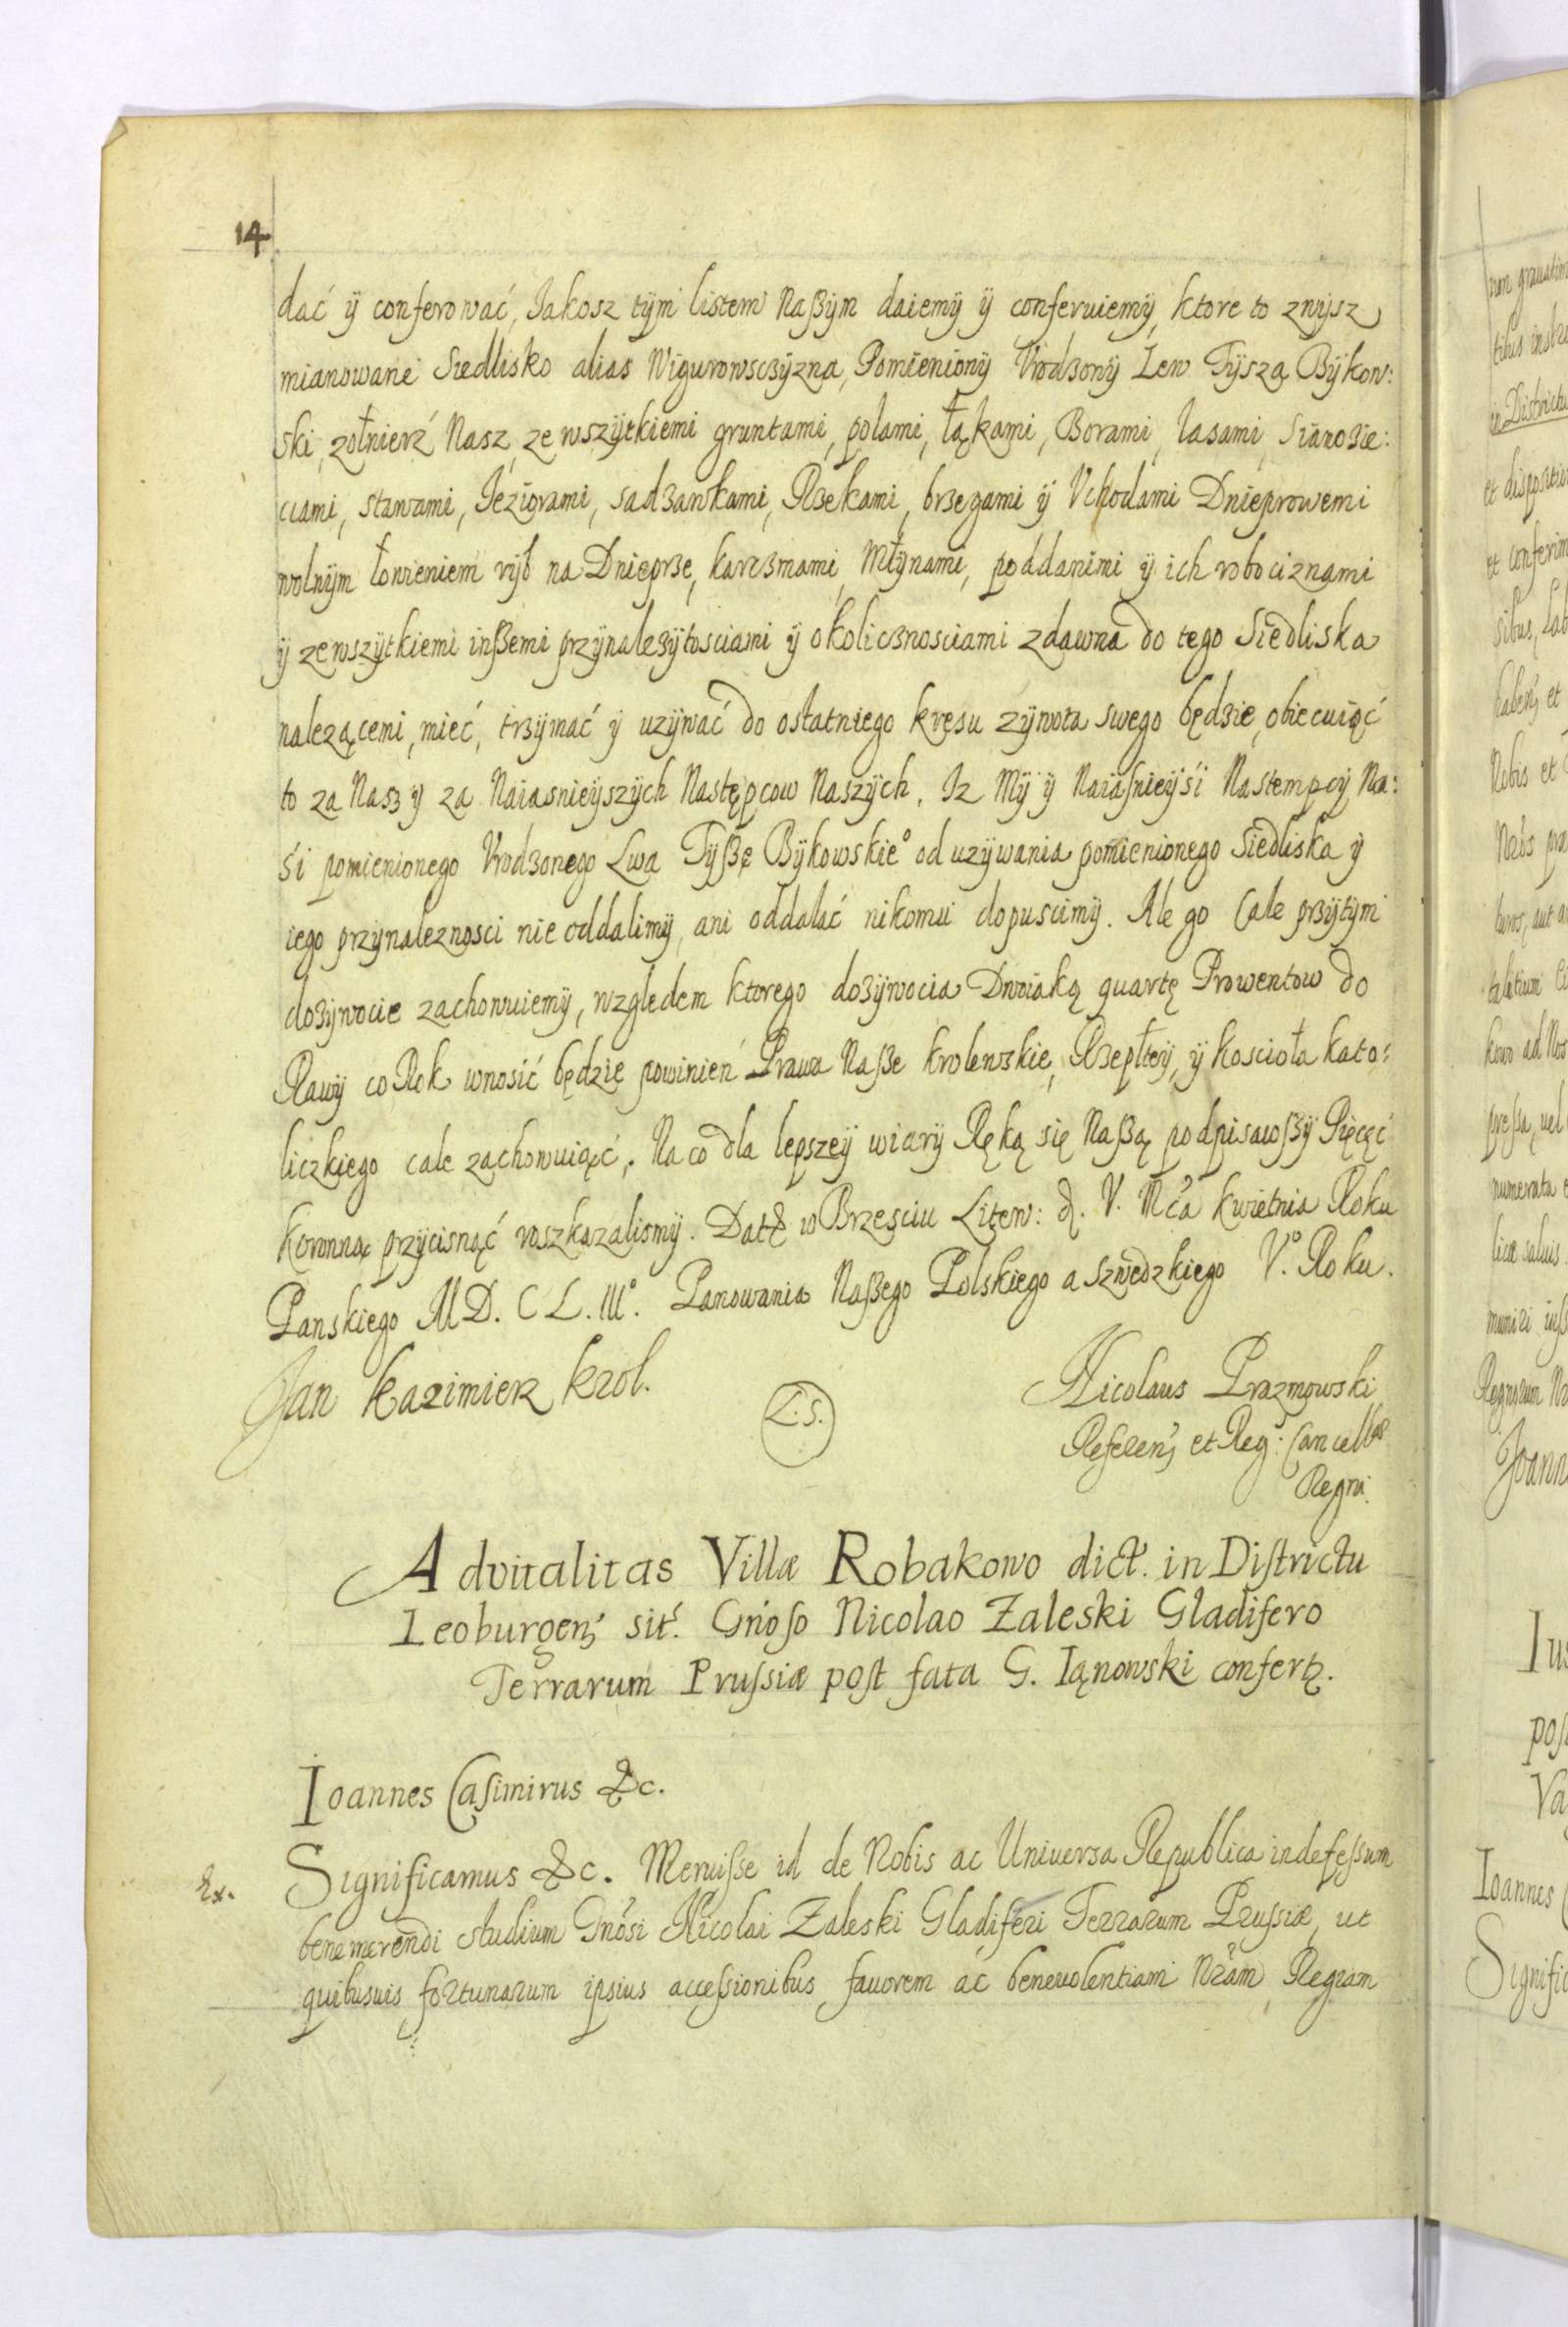 14
dać ÿ conferować, Jakosz tÿm listem Naßÿm daiemÿ ÿ conferuiemÿ, ktore to zwÿsz
mianowane Siedlisko alias Wigurowsczÿzna, Pomienionÿ Vrodzonÿ Lew Tÿsza Bÿkow:
ski, zołnierz Nasz, ze wszÿtkiemi gruntami, polami, łąkami, Borami, lasami, Sianozię:
ciami, stawami, Jeziorami, sadzawkami, Rzekami, brzegami ÿ Vchodami Dnieprowemi
wolnÿm łowieniem rÿb na Dnieprze, karczmami, Młÿnami, poddanimi ÿ ich robociznami
ÿ ze wszÿtkiemi inßemi przÿnalezÿtosciami ÿ okolicznosciami zdawna do tego Siedliska
nalezącemi, mieć, trzÿmać ÿ uzÿwać do ostatniego kresu zÿwota swego będzie, obiecuiąć
to za Nasz ÿ za Naiasnieÿszÿch Następcow Naszÿch. Iz Mÿ ÿ Naiaśnieÿśi Nastempcÿ Na:
śi pomienionego Vrodzonego Lwa Tÿßę Bÿkowskieº od uzÿwania pomienionego Siedliska ÿ
iego przÿnaleznosci nie oddalimÿ, ani oddalać nikomu dopuscimÿ. Ale go Cale przÿtÿm
dozÿwocie zachowuiemÿ, względem ktorego dozÿwocia Dwoiaką quartę Prowentow do
Rawÿ co Rok wnosić będzie powinień Prawa Naße krolewskie, Rzepłteÿ, ÿ kosciola kato:
liczkiego cale zachowuiąć. Na co dla lepszeÿ wiarÿ Ręką się Naßą podpisawßÿ Pięcęć
koronną przÿcisnąć roszkazalismÿ. Datt w Brzesciu Litew: d. V. Mca kwietnia Roku
Panskiego M D. C L. IIIº. Panowania Naßego Polskiego a Szwedzkiego Vº. Roku.
Jan Kazimierz Krol.
L.S.
Nicolaus Prazmowski
Referen et Reg: Cancellae
Regni.
Advitalitas Villæ Robakowo dict. in Districtu
Leoburgen sit. Gnoso Nicolao Zaleski Gladifero
Terrarum Prussiæ post fata G. Ianowski confert.
Ioannes Casimirus &c.
Ex.
Significamus &c. Meruisse id de Nobis ac Universa Republica indefessum
benemerendi studium Gnosi Nicolai Zaleski Gladiferi Terrarum Prussiæ, ut
quibusuis fortunarum ipsius accessionibus fauorem ac beneuolentiam Nram Regiam